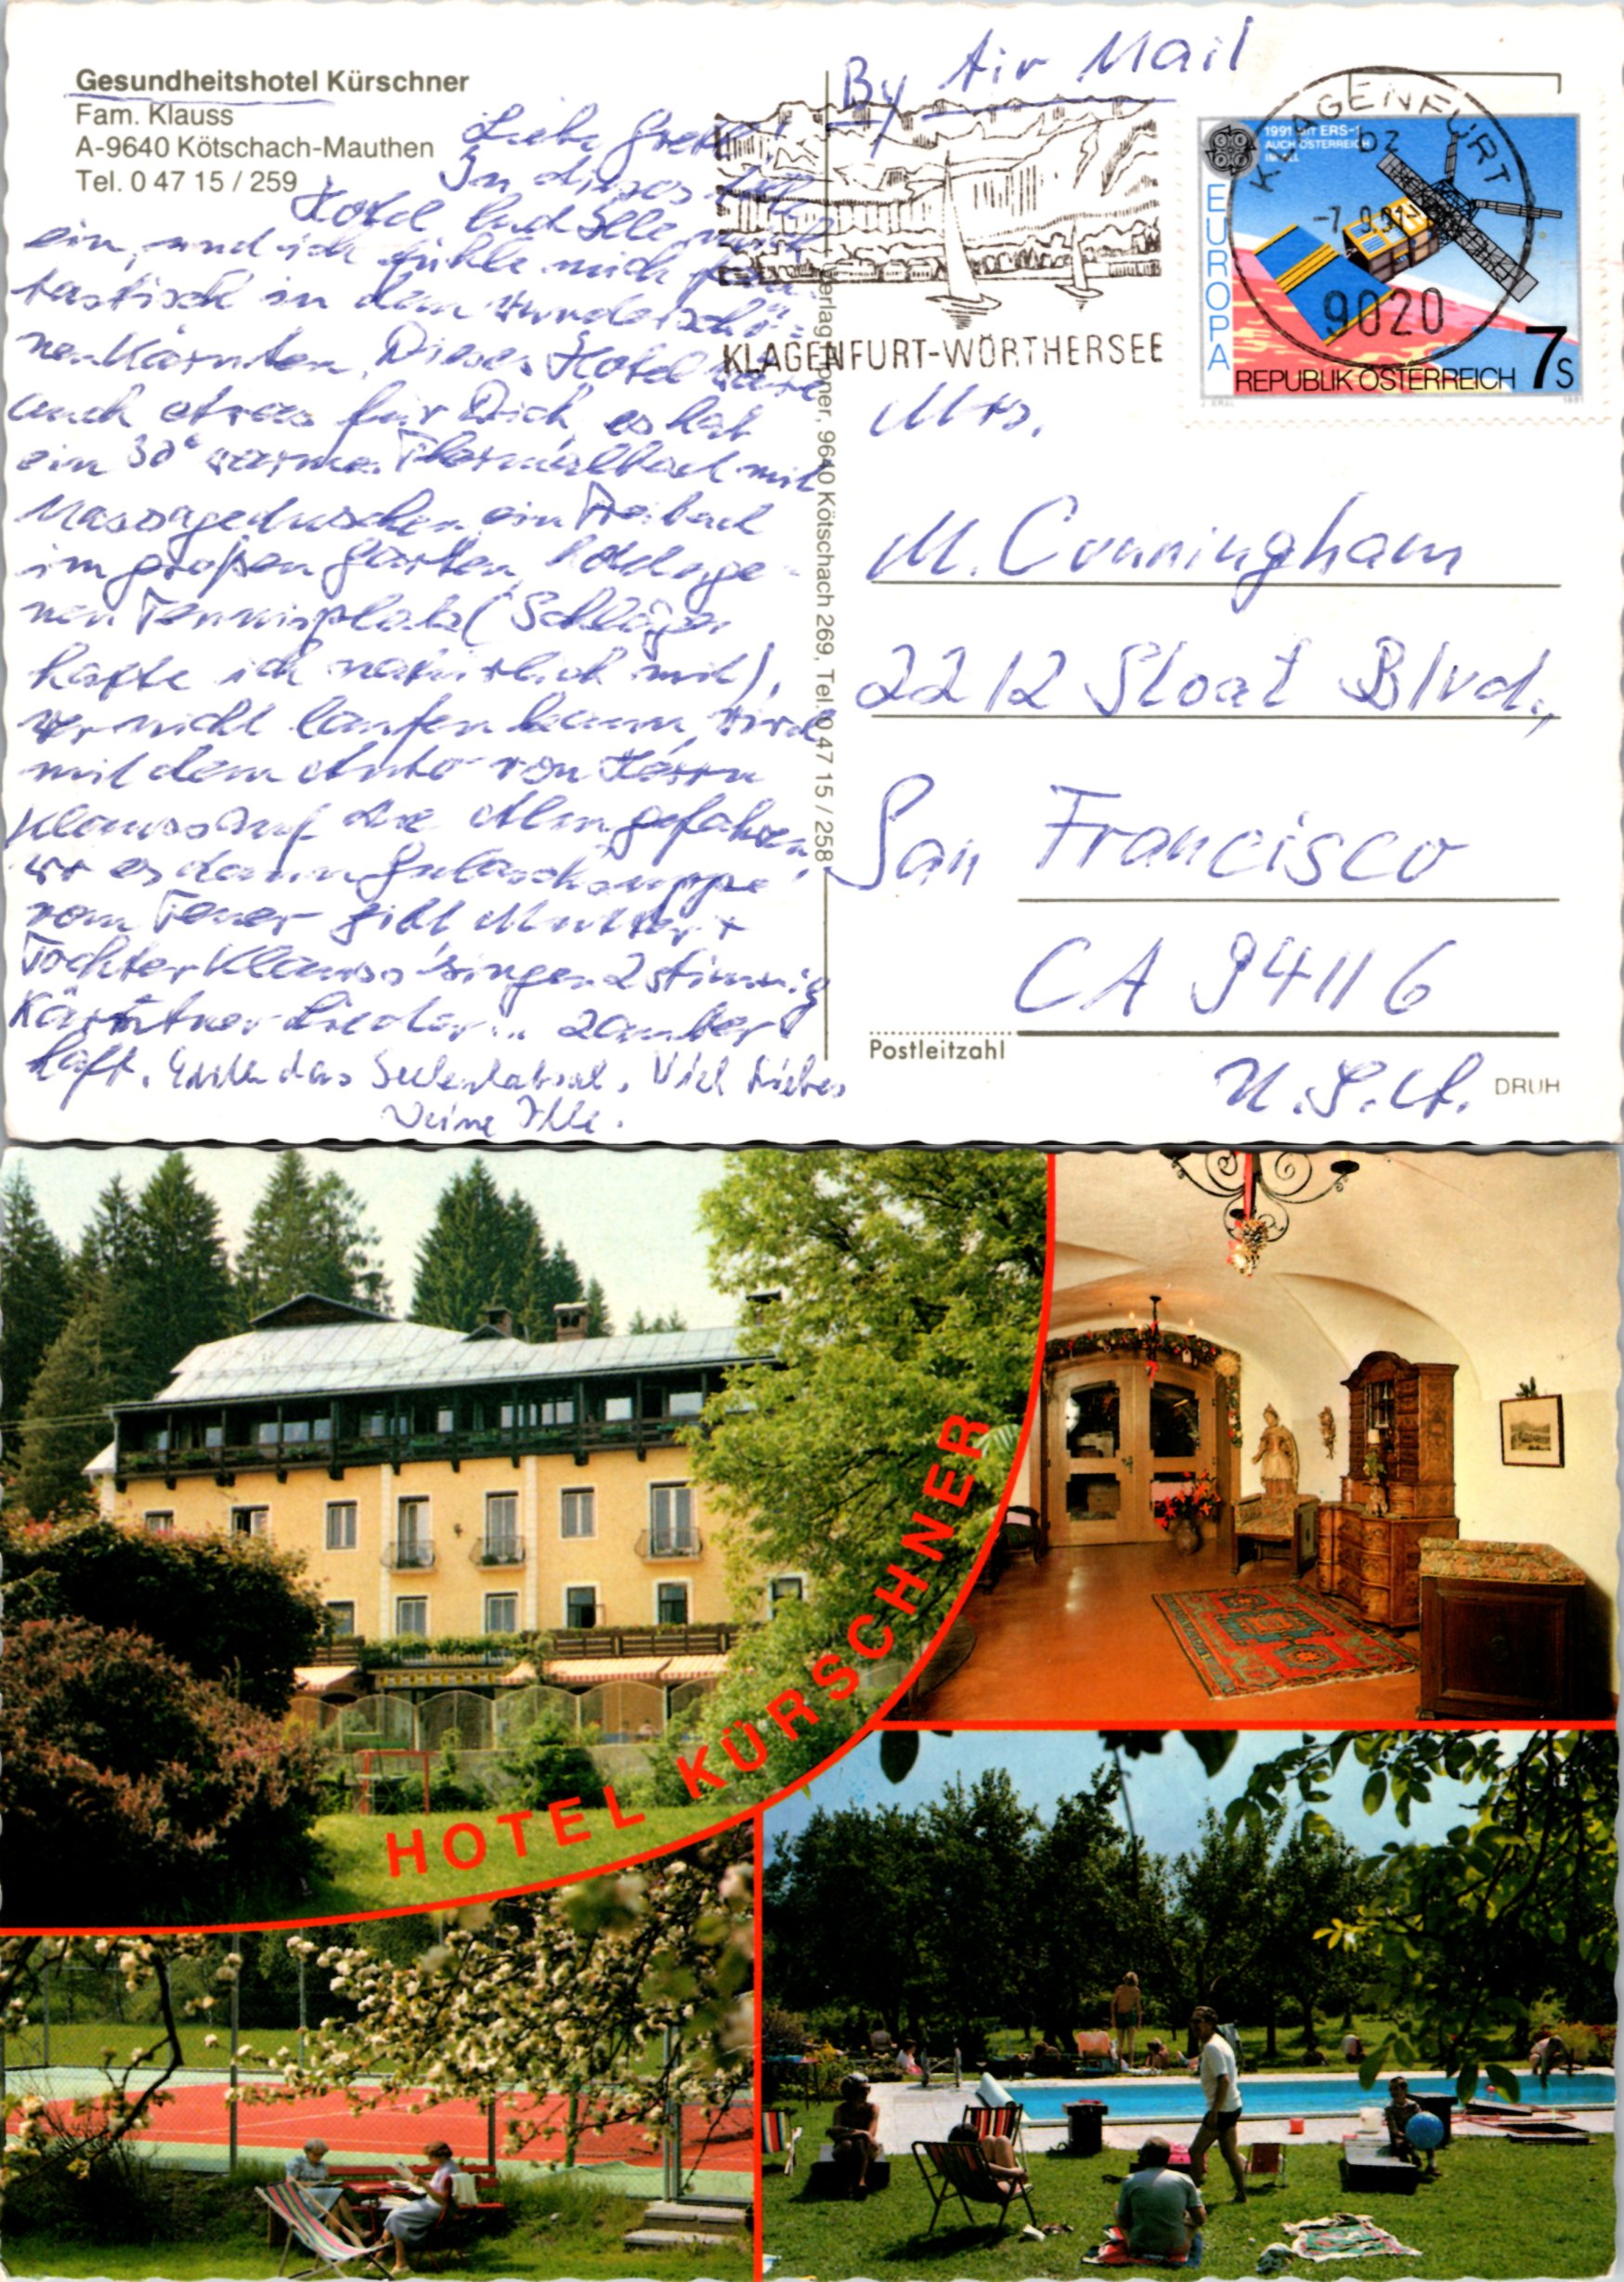 Gesundheitshotel Kürschner
Fam. Klauss
A-9640 Kötschach-Mauthen
Tel. 0 47 15 / 259
Liebe Gretl!
In dieses
Hotel lud Ille mich
ein, und ich fühle mich fan-
tastisch in dem wunderschö-
nen Kärnten. Dieses Hotel wäre
auch etwas für Dich, es hat
ein 30° warmes Thermalbad mit
Massageduschen, ein Freibad
im großen Garten,
nen Tennisplatz (Schläger
hatte ich natürlich mit),
wer nicht laufen kann, wird
mit dem Auto von Herrn
Klauss auf die Alm gefahren,
wo es dann Gulaschsuppe
vom Feuer gibt Mutter +
Tochter Klauss singen 2 stimmig
Kärntner Lieder... zauber
haft. das Viel Liebes
Deine Ille.
Verlag Toner, 9640 Kötschach 269, Tel. 0 47 15 / 258
By Air Mail
KLAGENFURT-WÖRTHERSEE
KLAGENFURT
bz
9020
1991 MIT ERS-1
AUCH ÖSTERREICH
IM ALL
EUROPA
REPUBLIK ÖSTERREICH 7S
1991
Mrs.
M. Cunningham
2212 Sloat Blvd.,
San Francisco
CA 94116
Postleitzahl
U.S.A.
DRUH
HOTEL KÜRSCHNER